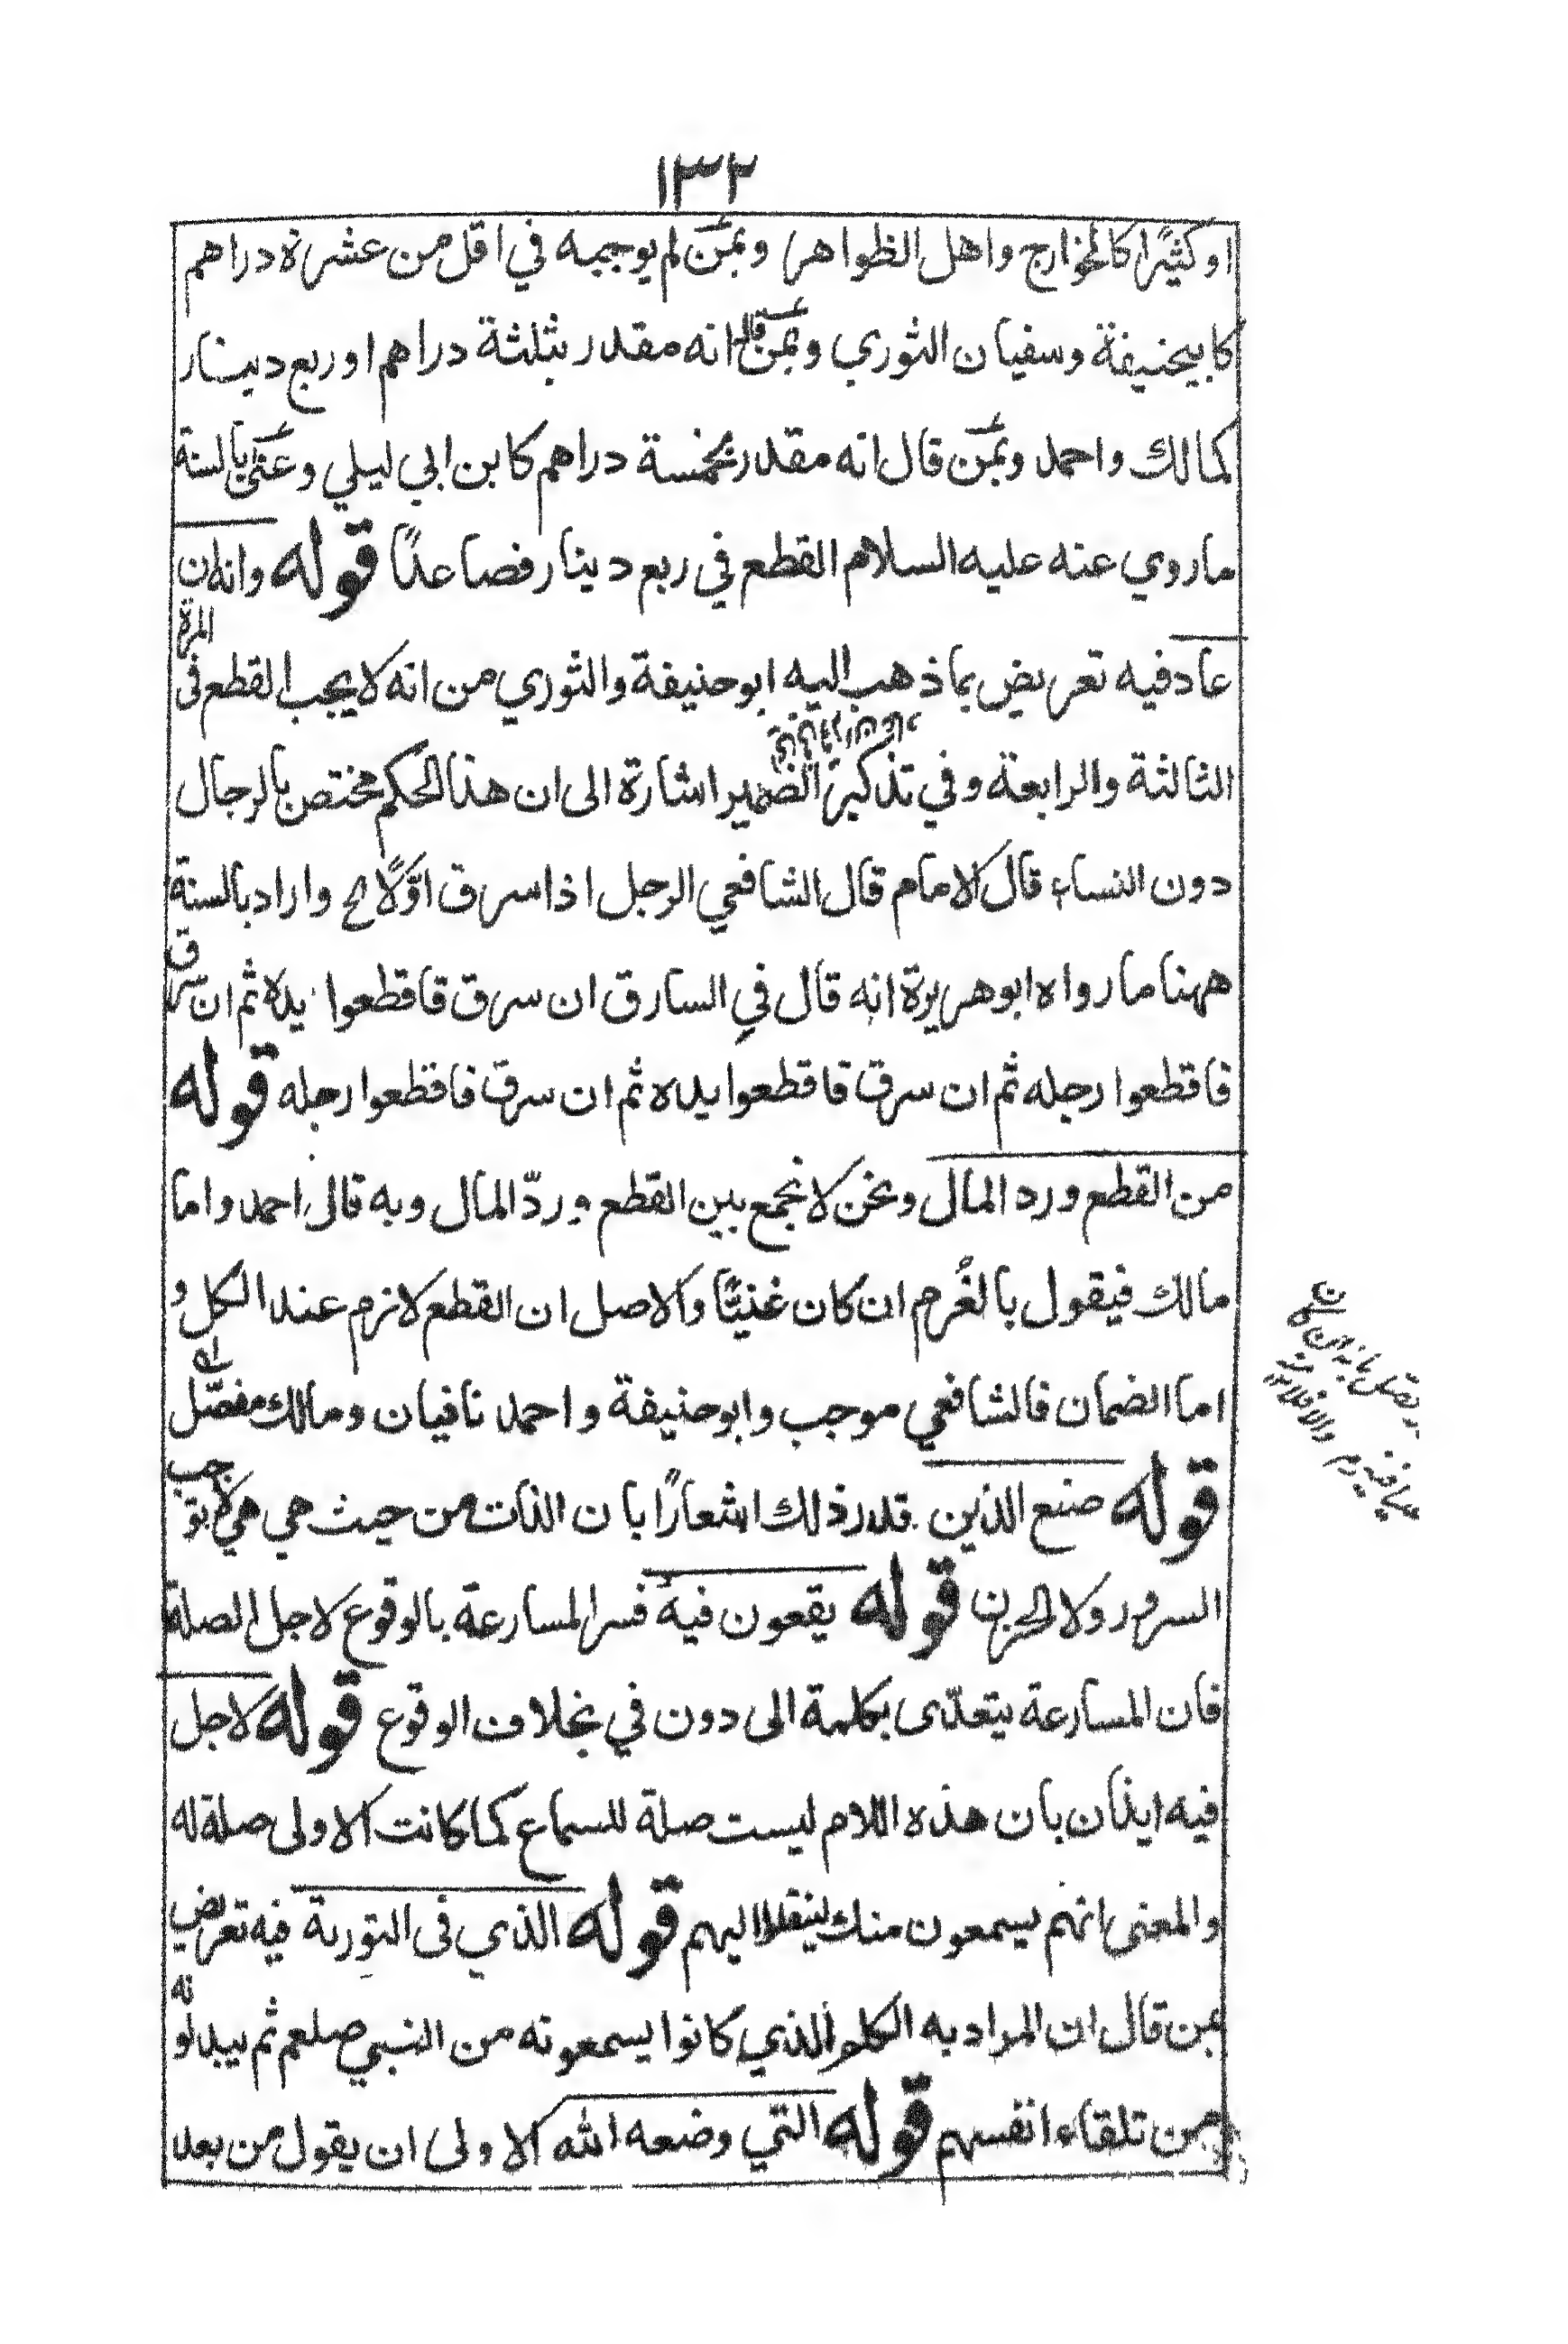 ١٣٢
او كثيرًا كالخوارج واهل الظواهر وبمن لم يوجبه في اقل من عشرة دراهم
كابيحنيفة وسفيان الثوري وبمن قال انه مقدر بثلثة دراهم او ربع دينار
كمالك واحمد وبمن قال انه مقدر بخمسة دراهم كابن ابي ليلي وعنى بالسنة
ماروي عنه عليه السلام القطع في ربع دينار فصاعدًا قوله وانه ان
عاد فيه تعريض بماذهب اليه ابوحنيفة والثوري من انه لا يجب القطع فى المرة
الثالثة والرابعة وفي تذكير الضمير اشارة الى ان هذا الحكم مختص بالرجال
دون النساء قال الامام قال الشافعي الرجل اذا سرق اوّلًا ح واراد بالسنة
ههنا مارواه ابوهريرة انه قال في السارق ان سرق فاقطعوا يده ثم ان سرق
فاقطعوا رجله ثم ان سرق فاقطعوا يده ثم ان سرق فاقطعوا رجله قوله
من القطع ورد المال ونحن لا نجمع بين القطع وردّ المال وبه قال احمد واما
مالك فيقول بالغُرم ان كان غنيًّا والاصل ان القطع لازم عند الكل و
اما الضمان فالشافعي موجب وابوحنيفة واحمد نافيان ومالك مفصّل
قوله صنع الذين قدر ذلك اشعارًا بان الذات من حيث هي هي لا توجب
السرور ولا الحزن قوله يقعون فيه فسر المسارعة بالوقوع لاجل الصلة
فان المسارعة يتعدّى بكلمة الى دون في بخلاف الوقوع قوله لاجل
فيه ايذان بان هذه اللام ليست صلة للسماع كما كانت الاولى صلة له
والمعنى انهم يسمعون منك لينقلوا اليهم قوله الذي فى التورية فيه تعريض
بمن قال ان المراد به الكلام الذي كانوا يسمعونه من النبي صلعم ثم يبدلونه
من تلقاء انفسهم قوله التي وضعه الله الاولى ان يقول من بعد